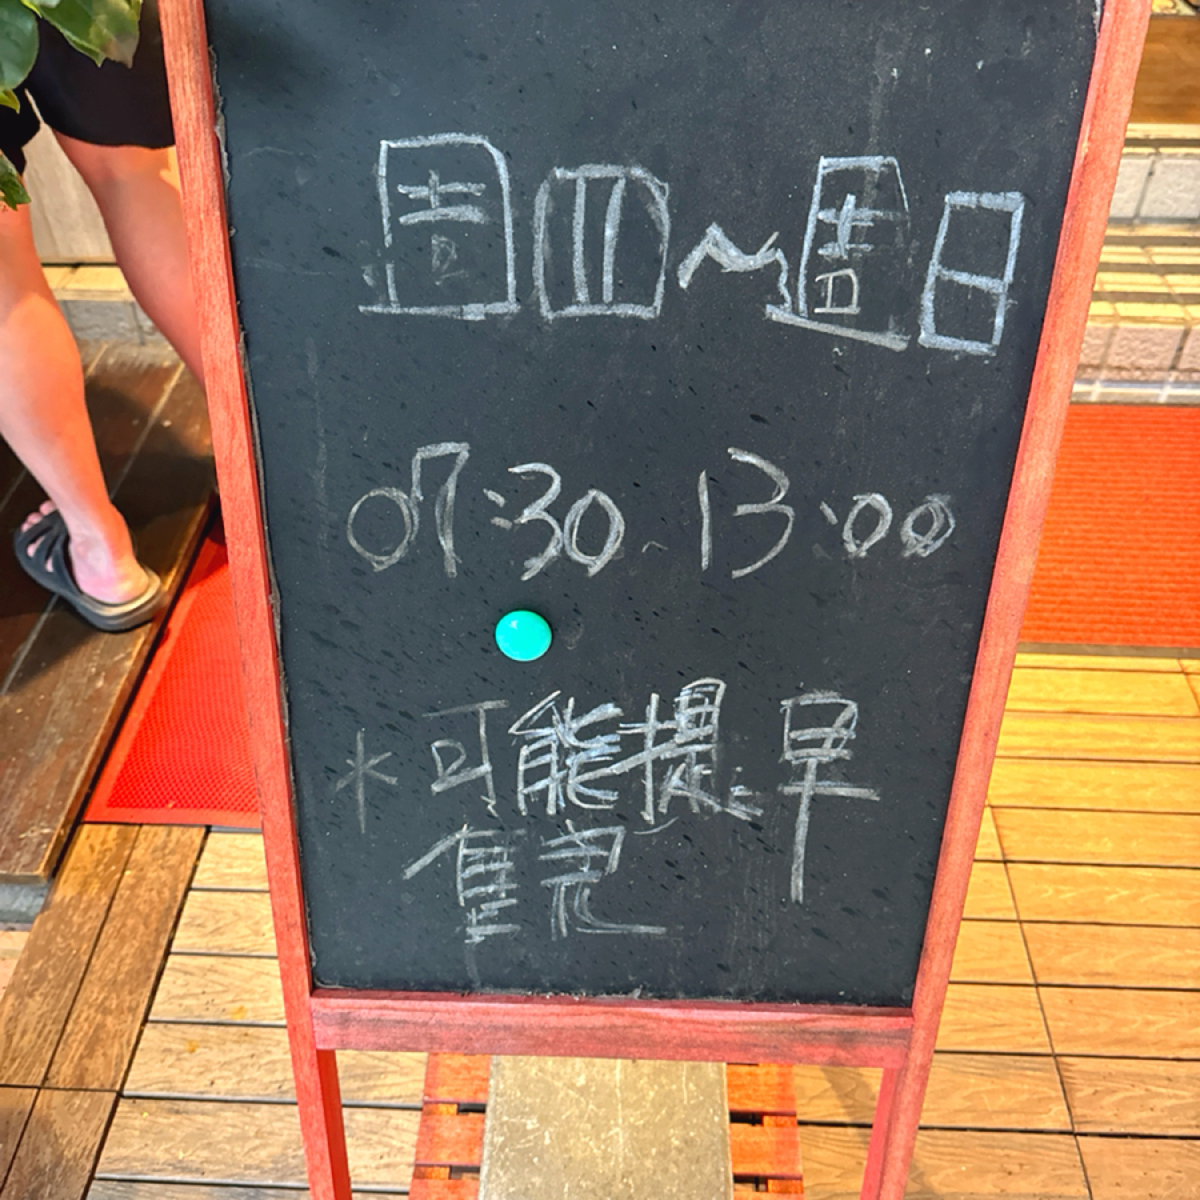 週四~週日
07:30~13:00
*可能提早
售完